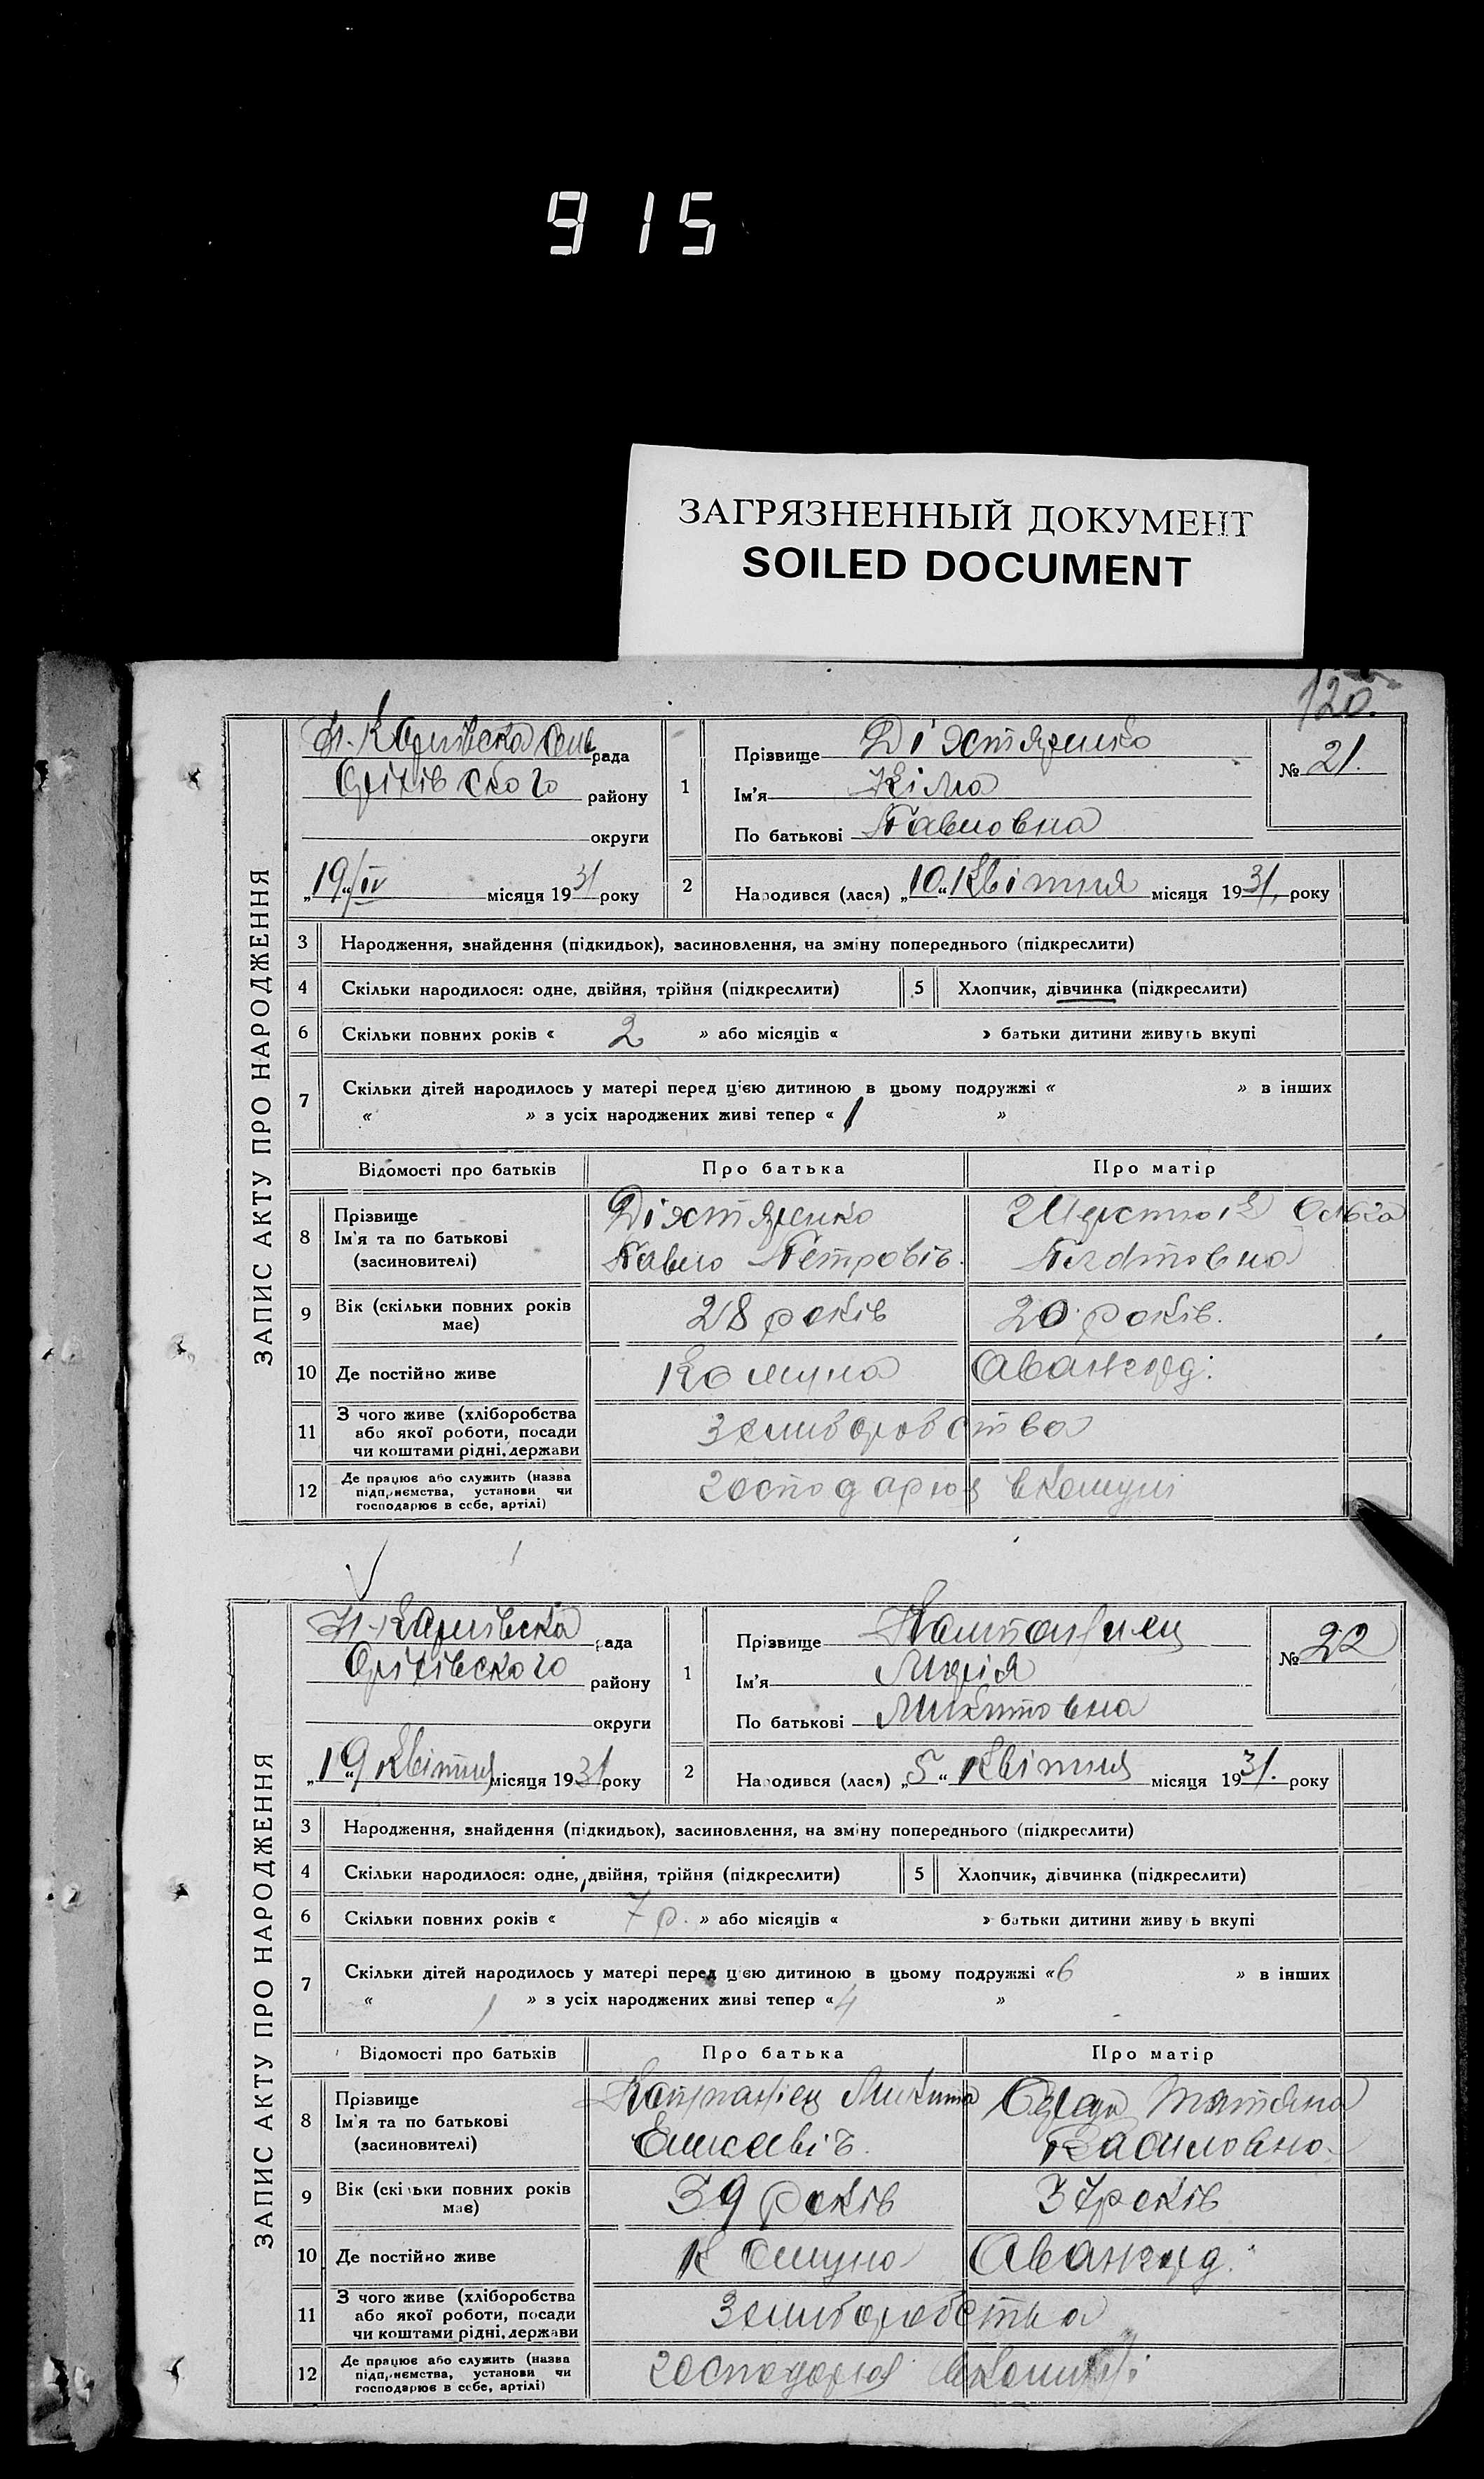 915
ЗАГРЯЗНЕННЫЙ ДОКУМЕНТ
SOILED DOCUMENT
120.
ЗАПИС АКТУ ПРО НАРОДЖЕННЯ
рада
Оріхівского району
округи
„19“/IV місяця 1931 року
1
Прізвище
Ім'я Кіма
По батькові Павловна
№ 21.
2
Народився (лася) „10“ Квітня місяця 1931, року
3 Народження, знайдення (підкидьок), засиновлення, на зміну попереднього (підкреслити)
4 Скільки народилося: одне, двійня, трійня (підкреслити) 5 Хлопчик, дівчинка (підкреслити)
6 Скільки повних років « 2 » або місяців « » батьки дитини живуть вкупі
7 Скільки дітей народилось у матері перед цією дитиною в цьому подружжі « » в інших
« » з усіх народжених живі тепер « 1 »
Відомості про батьків Про батька Про матір
8 Прізвище
Ім'я та по батькові
(засновителі)
Павло Петровіч.
Ольга
9 Вік (скільки повних років має)
28 років
20 років.
10 Де постійно живе
Комуна Авангард.
11 З чого живе (хліборобства
або якої роботи, посади
чи коштами рідні, держави
12 Де працює або служить (назва
підприємства, установи чи
господарює в себе, артілі)
господарює в комуні
ЗАПИС АКТУ ПРО НАРОДЖЕННЯ
рада
Оріхівского району
округи
„19“ Квітня місяця 1931 року
1
Прізвище
Ім'я Марія
По батькові Микитовна
№ 22
2
Народився (лася) „5“ Квітня місяця 1931. року
3 Народження, знайдення (підкидьок), засиновлення, на зміну попереднього (підкреслити)
4 Скільки народилося: одне, двійня, трійня (підкреслити) 5 Хлопчик, дівчинка (підкреслити)
6 Скільки повних років « 7 р. » або місяців « » батьки дитини живуть вкупі
7 Скільки дітей народилось у матері перед цією дитиною в цьому подружжі «6 » в інших
« 1 » з усіх народжених живі тепер «4 »
Відомості про батьків Про батька Про матір
8 Прізвище
Ім'я та по батькові
(засновителі)
Микита
Татяна
Василовна.
9 Вік (скільки повних років має)
39 років
37 років
10 Де постійно живе
Комуна Авангард.
11 З чого живе (хліборобства
або якої роботи, посади
чи коштами рідні, держави
12 Де працює або служить (назва
підприємства, установи чи
господарює в себе, артілі)
господарює в комуні